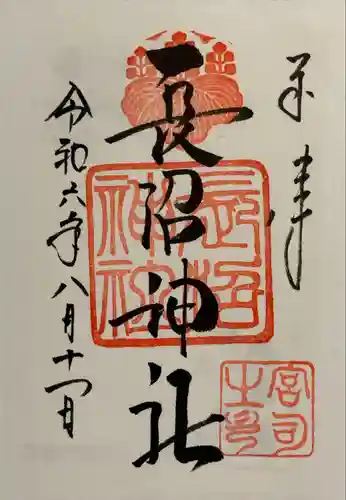 奉拝
長沼神社
令和六年八月十一日
長沼
神社
宮司